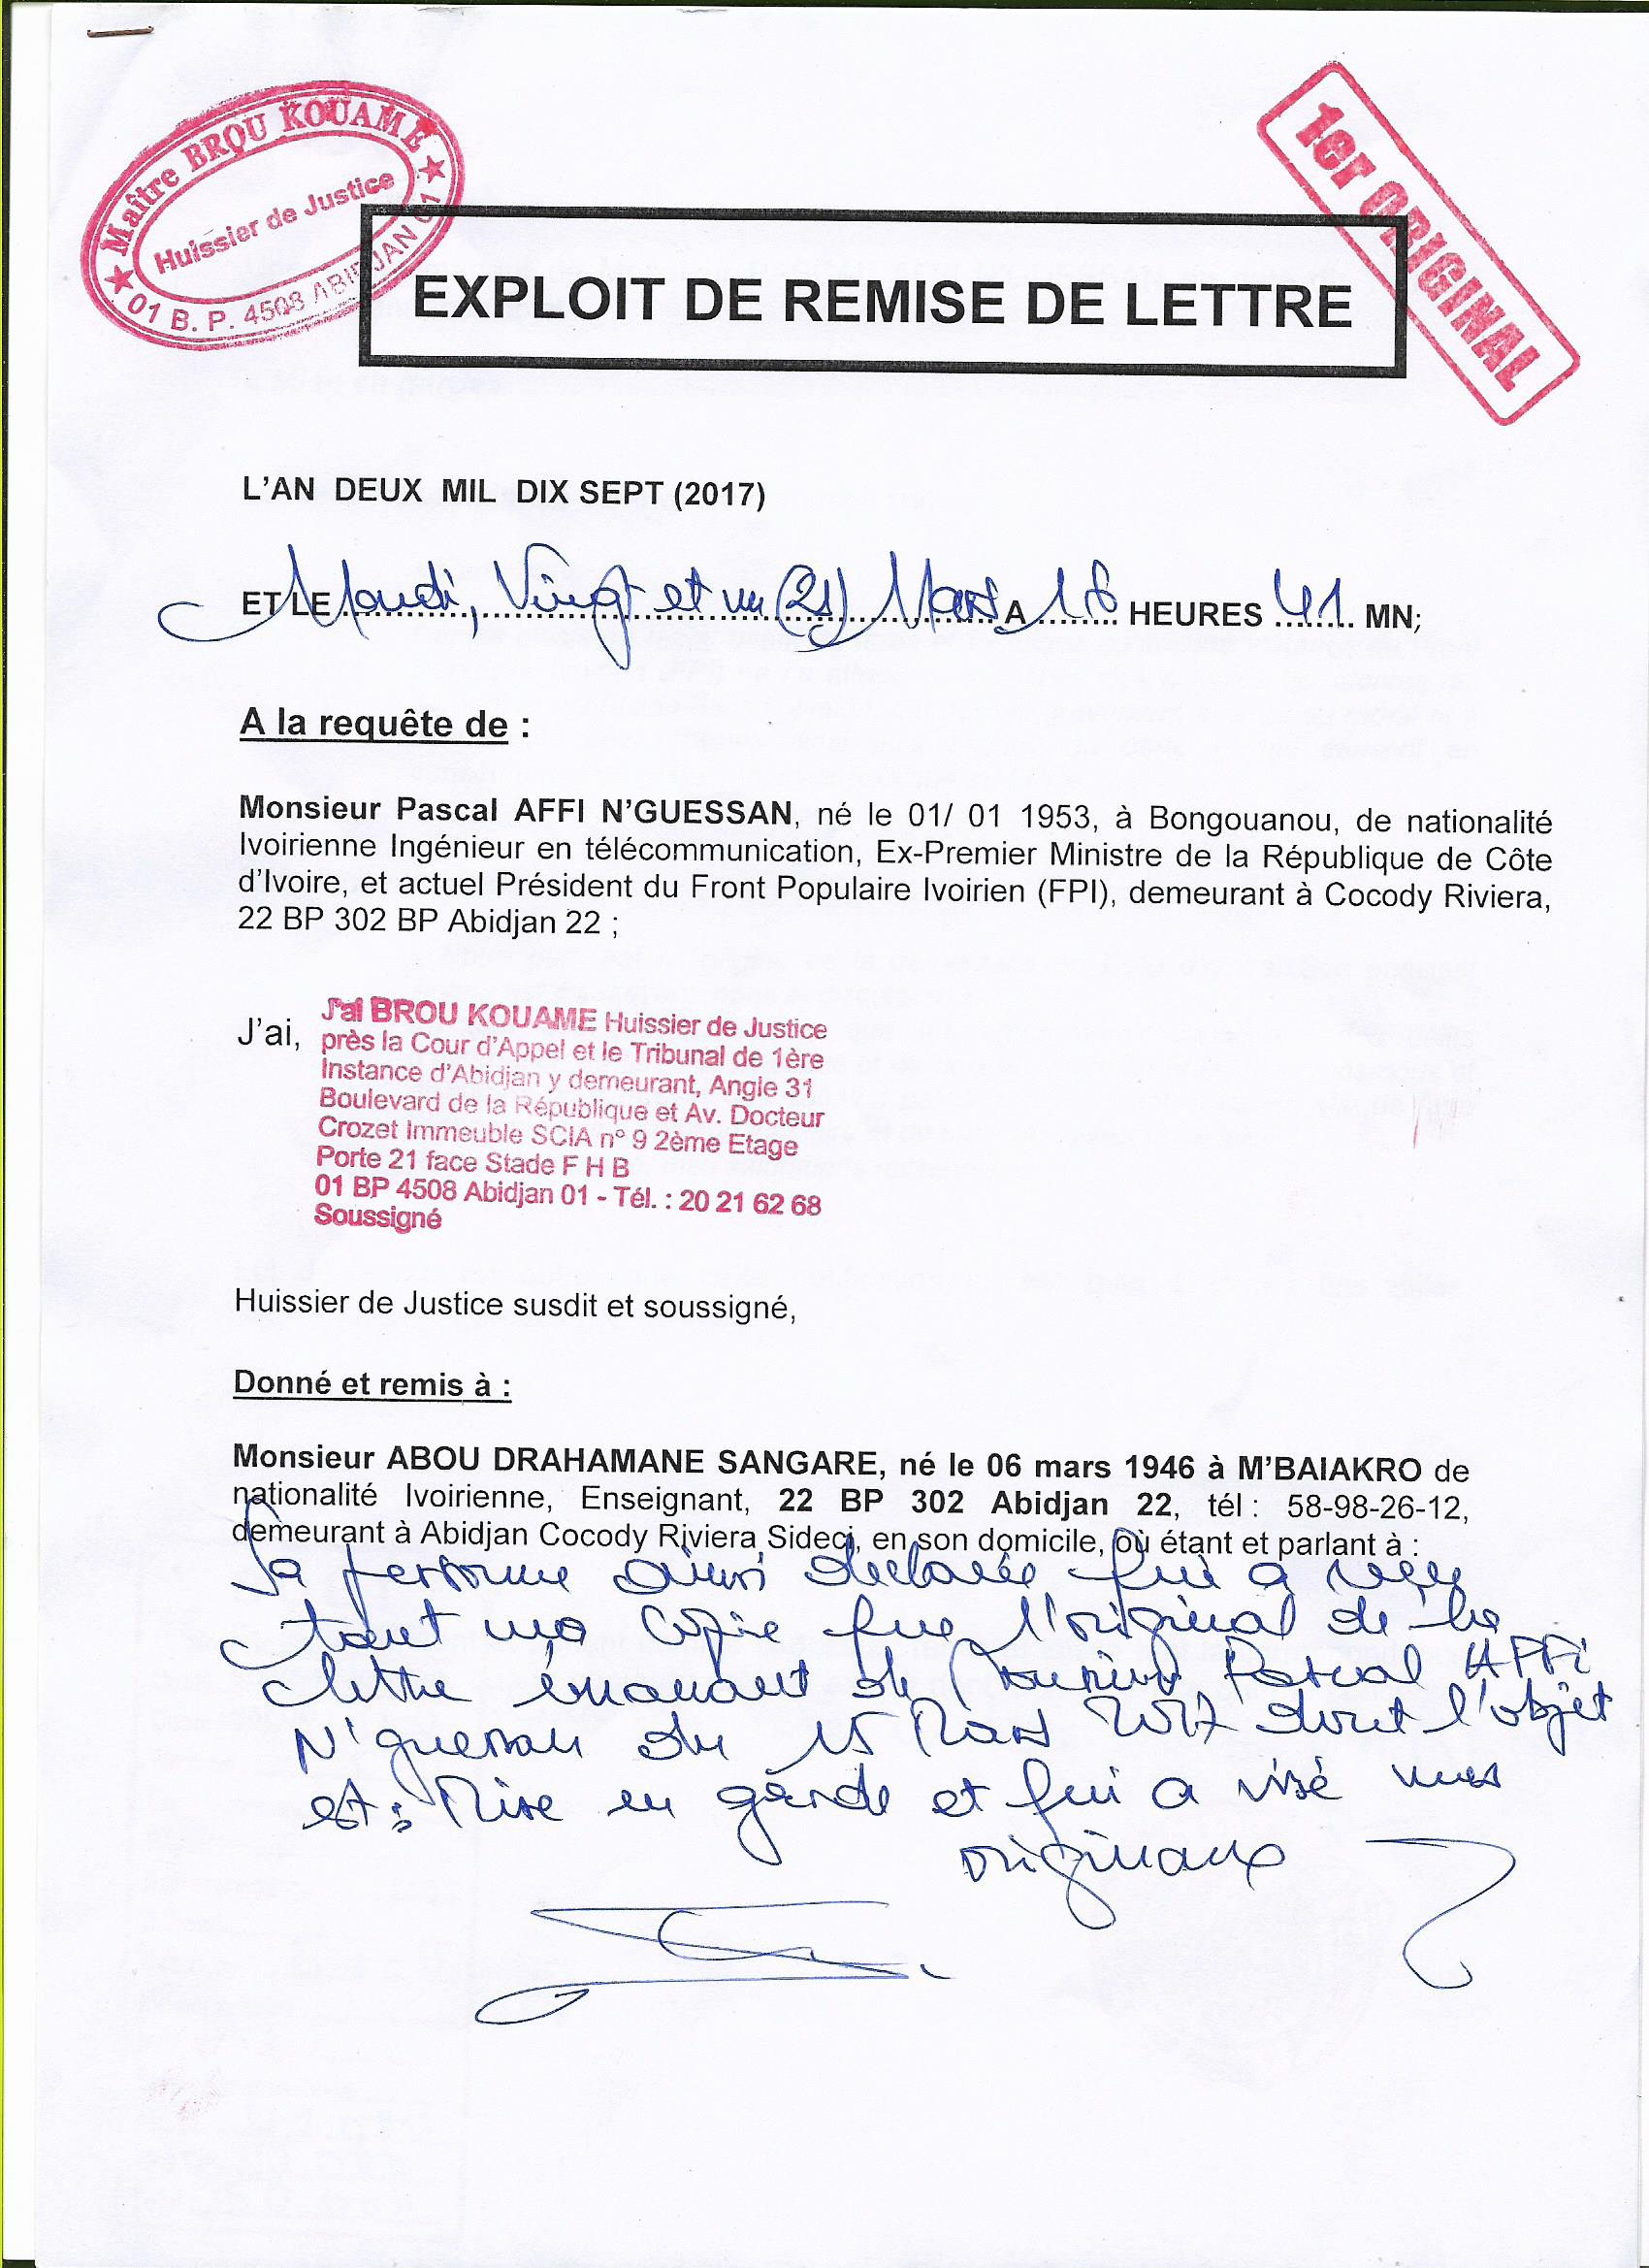 Maître BROU KOUAME
Huissier de Justice
01 B. P. 4508 ABIDJAN 01
1er ORIGINAL
EXPLOIT DE REMISE DE LETTRE
L'AN DEUX MIL DIX SEPT (2017)
ET LE Mardi, Vingt et un (21) Mars A 16 HEURES 41 MN;
A la requête de :
Monsieur Pascal AFFI N'GUESSAN, né le 01/ 01 1953, à Bongouanou, de nationalité
Ivoirienne Ingénieur en télécommunication, Ex-Premier Ministre de la République de Côte
d'Ivoire, et actuel Président du Front Populaire Ivoirien (FPI), demeurant à Cocody Riviera,
22 BP 302 BP Abidjan 22 ;
J'ai,
J'ai BROU KOUAME Huissier de Justice
près la Cour d'Appel et le Tribunal de 1ère
Instance d'Abidjan y demeurant, Angle 31
Boulevard de la République et Av. Docteur
Crozet Immeuble SCIA n° 9 2ème Etage
Porte 21 face Stade F H B
01 BP 4508 Abidjan 01 - Tél. : 20 21 62 68
Soussigné
Huissier de Justice susdit et soussigné,
Donné et remis à :
Monsieur ABOU DRAHAMANE SANGARE, né le 06 mars 1946 à M'BAIAKRO de
nationalité Ivoirienne, Enseignant, 22 BP 302 Abidjan 22, tél : 58-98-26-12,
demeurant à Abidjan Cocody Riviera Sideci, en son domicile, où étant et parlant à :
Sa personne ainsi déclarée qui a reçu
tant ma copie que l'original de la
lettre émanant de Monsieur Pascal AFFI
N'guessan du 15 Mars 2017 dont l'objet
est : Mise en garde et qui a visé mes
originaux